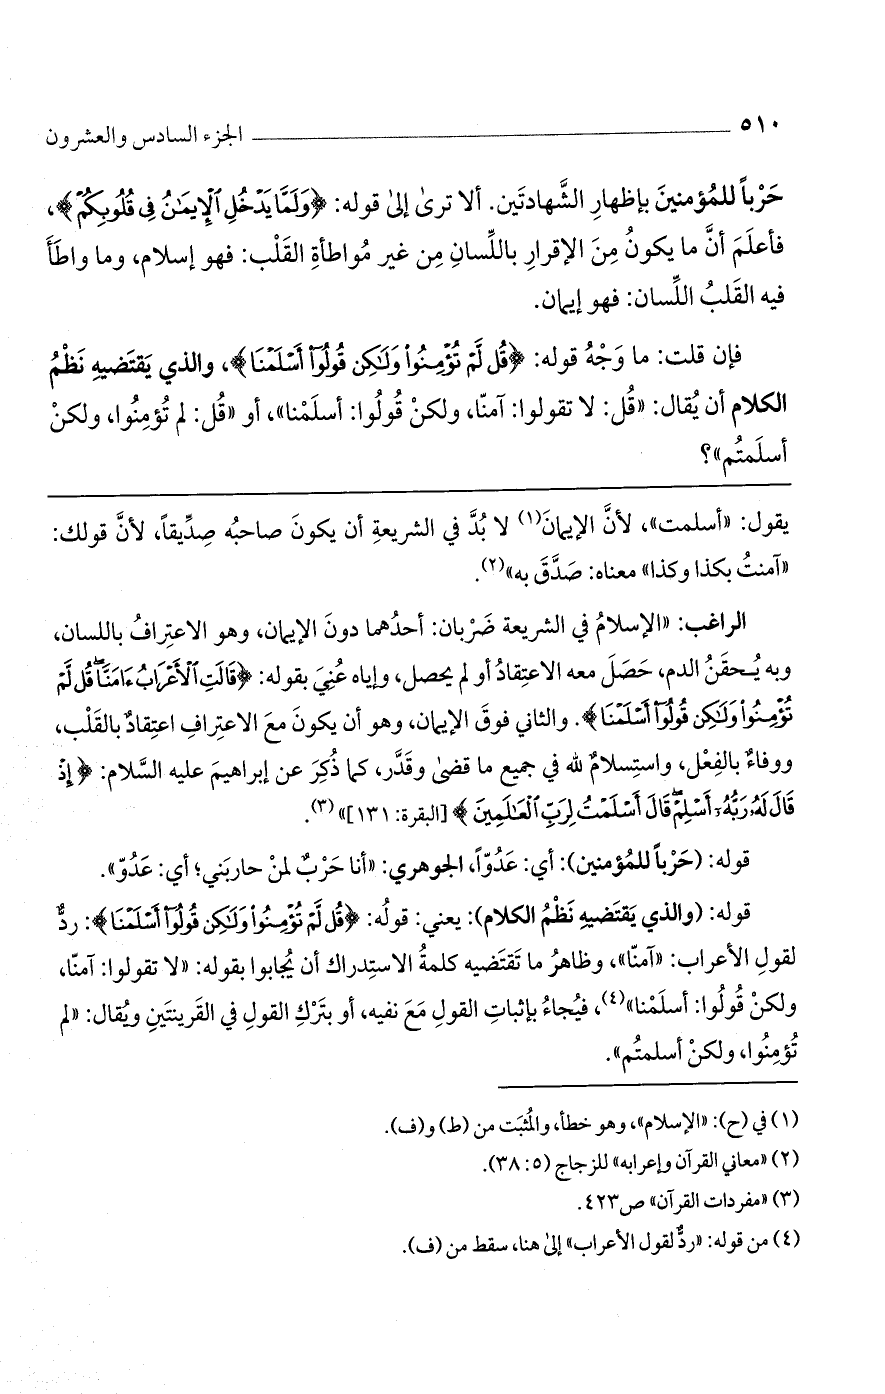 ٥١٠ الجزء السادس والعشرون
حَرْباً للمُؤمنينَ بإظهارِ الشَّهادتَين. ألا ترىٰ إلىٰ قوله: ﴿وَلَمَّا يَدْخُلِ ٱلْإِيمَٰنُ فِى قُلُوبِكُمْ﴾،
فأعلَمَ أنَّ ما يكونُ مِنَ الإقرارِ باللِّسانِ مِن غيرِ مُواطأةِ القَلْب: فهو إسلام، وما واطَأَ
فيه القَلبُ اللِّسان: فهو إيمان.
فإن قلت: ما وَجْهُ قوله: ﴿قُل لَّمْ تُؤْمِنُوا۟ وَلَٰكِن قُولُوٓا۟ أَسْلَمْنَا﴾، والذي يَقتَضيهِ نَظْمُ
الكلام أن يُقال: «قُل: لا تقولوا: آمنّا، ولكنْ قُولُوا: أسلَمْنا»، أو «قُل: لم تُؤمِنُوا، ولكنْ
أسلَمتُم»؟
يقول: «أسلمت»، لأنَّ الإيمانَ(١) لا بُدَّ في الشريعةِ أن يكونَ صاحبُه صِدِّيقاً، لأنَّ قولك:
«آمنتُ بكذا وكذا» معناه: صَدَّقَ به»(٢).
الراغب: «الإسلامُ في الشريعة ضَرْبان: أحدُهما دونَ الإيمان، وهو الاعتِرافُ باللسان،
وبه يُـحقَنُ الدم، حَصَلَ معه الاعتِقادُ أو لم يحصل، وإياه عُنِيَ بقوله: ﴿قَالَتِ ٱلْأَعْرَابُ ءَامَنَّا ۖ قُل لَّمْ
تُؤْمِنُوا۟ وَلَٰكِن قُولُوٓا۟ أَسْلَمْنَا﴾. والثاني فوقَ الإيمان، وهو أن يكونَ معَ الاعتِرافِ اعتِقادٌ بالقَلْب،
ووفاءٌ بالفِعْل، واستِسلامٌ لله في جميع ما قضىٰ وقَدَّر، كما ذُكِرَ عن إبراهيمَ عليه السَّلام: ﴿إِذْ
قَالَ لَهُۥ رَبُّهُۥٓ أَسْلِمْ ۖ قَالَ أَسْلَمْتُ لِرَبِّ ٱلْعَٰلَمِينَ﴾ [البقرة: ١٣١]»(٣).
قوله: (حَرْباً للمُؤمنين): أي: عَدُوّاً، الجوهري: «أنا حَرْبٌ لمنْ حاربَني؛ أي: عَدُوّ».
قوله: (والذي يَقتَضيهِ نَظْمُ الكلام): يعني: قولُه: ﴿قُل لَّمْ تُؤْمِنُوا۟ وَلَٰكِن قُولُوٓا۟ أَسْلَمْنَا﴾: ردٌّ
لقولِ الأعراب: «آمنّا»، وظاهرُ ما تَقتَضيه كلمةُ الاستِدراك أن يُجابوا بقوله: «لا تقولوا: آمنّا،
ولكنْ قُولُوا: أسلَمْنا»(٤)، فيُجاءُ بإثباتِ القولِ مَعَ نفيه، أو بتَرْكِ القولِ في القَرينتَينِ ويُقال: «لم
تُؤمِنُوا، ولكنْ أسلمتُم».
(١) في (ح): «الإسلام»، وهو خطأ، والمُثبَت من (ط) و(ف).
(٢) «معاني القرآن وإعرابه» للزجاج (٥: ٣٨).
(٣) «مفردات القرآن» ص٤٢٣.
(٤) من قوله: «ردٌّ لقول الأعراب» إلىٰ هنا، سقط من (ف).